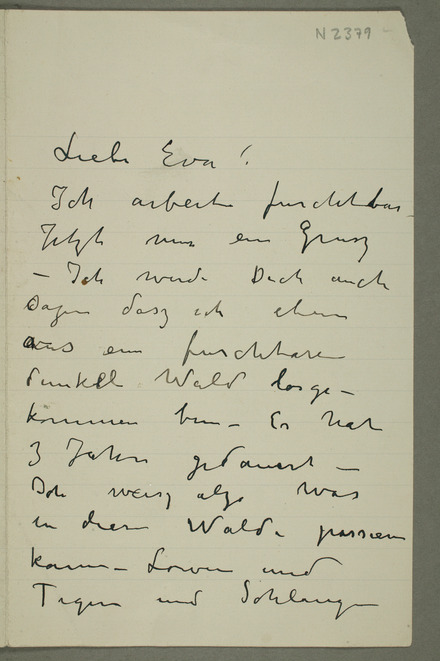 N 2379
Liebe Eva!
Ich arbeite furchtbar
Jetzt nur ein Grusz
– Ich werde Dich auch
sagen dasz ich eben
aus ein furchtbaren
dunkel Wald losge-
kommen bin – Es hat
3 Jahre gedauert –
Ich weisz alzo was
in diesen Walde passieren
kann – Löwen und
Tiger und Schlangen